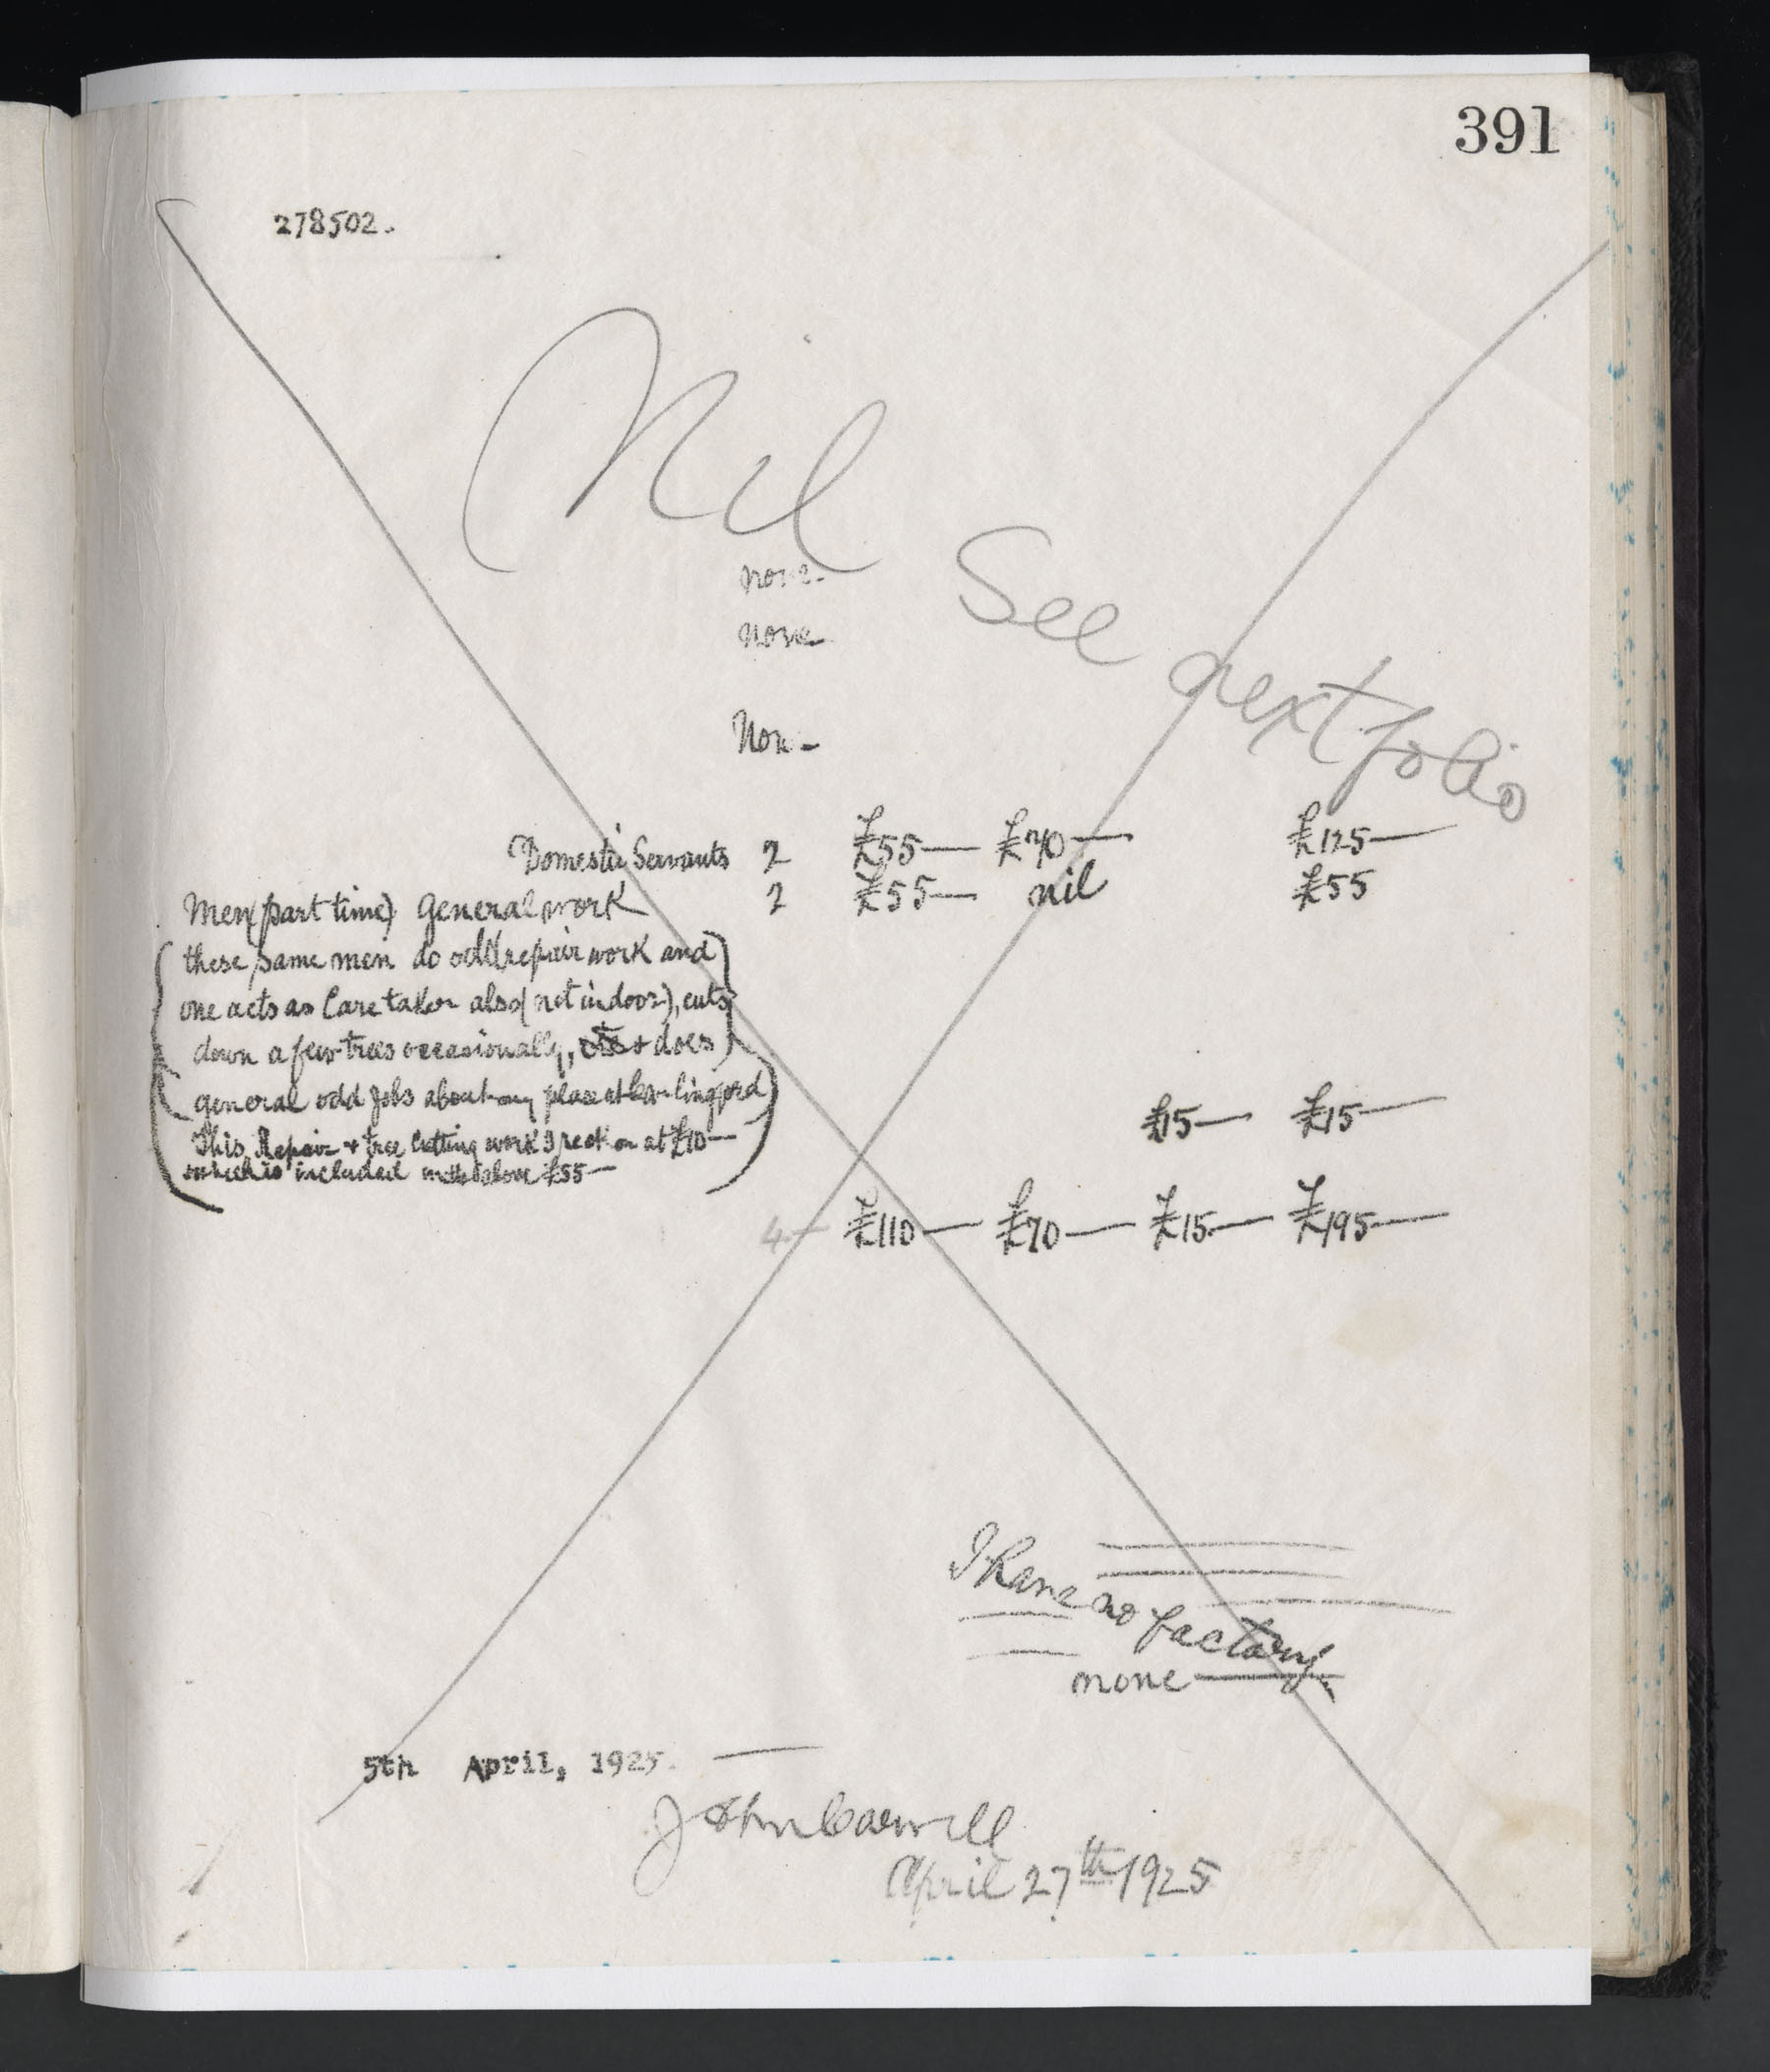 391
278502.
Nil
none
none
See next folio
Non-
Domestic Servants 2 £55— £70— £125—
Men (part time) general work 2 £55— nil £55
these same men do odd repair work and
one acts as Caretaker also (not indoor), cuts
down a few trees occasionally, & does
general odd jobs about my place at Carlingford
This Repair & tree Cutting work I reckon at £10—
which is included in the above £55—
£15— £15—
4— £110— £70— £15— £195—
I have no factory
none
5th April, 1925.
John
April 27th 1925